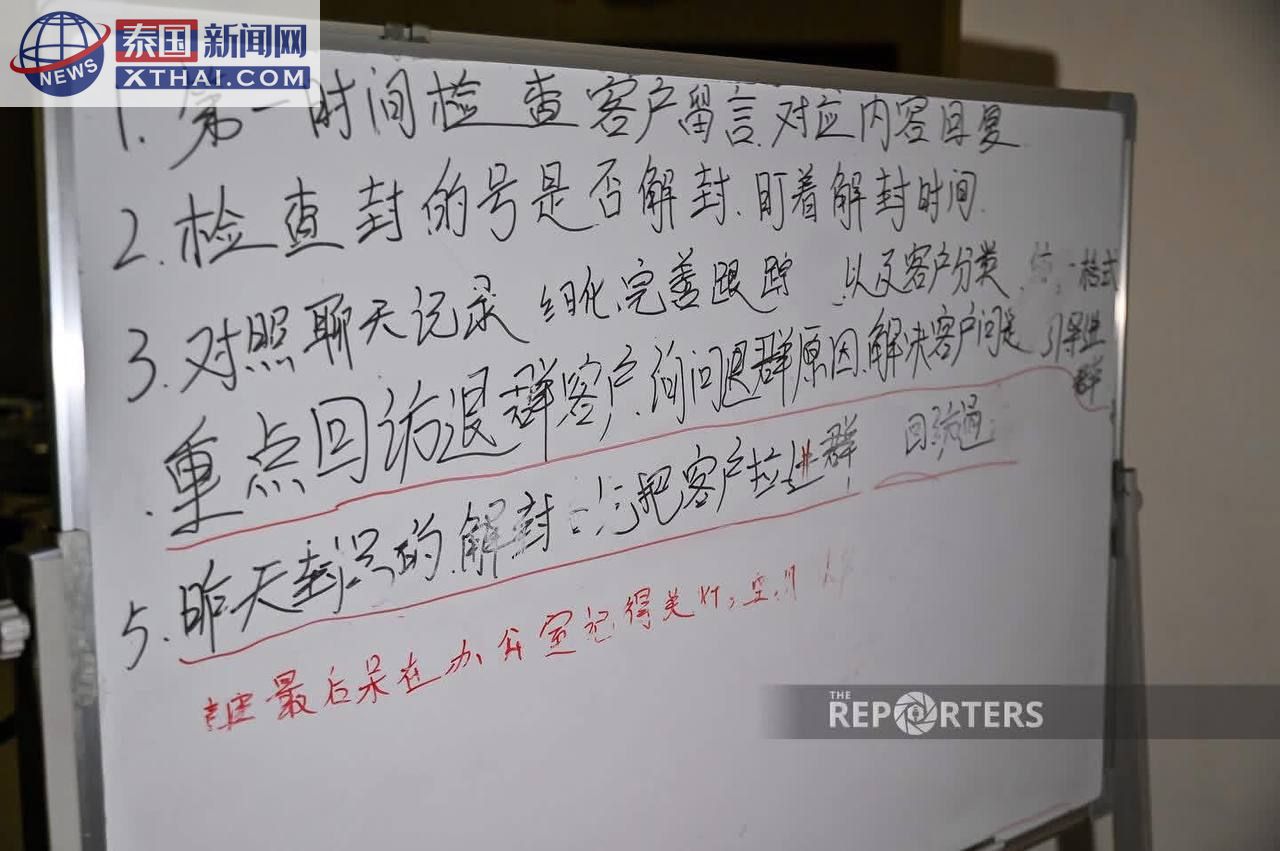 泰国新闻网
NEWS
XTHAI.COM
1. 第一时间检查客户留言.对应内容回复
2. 检查封的号是否解封.盯着解封时间.
3. 对照聊天记录 细化,完善跟踪 .以及客户分类. 格式
重点回访退群客户.询问退群原因.解决客户问题 引导进群
5. 昨天封号的.解封 把客户拉进群 回访过
最后呆在办公室记得关灯,空
THE
REPORTERS